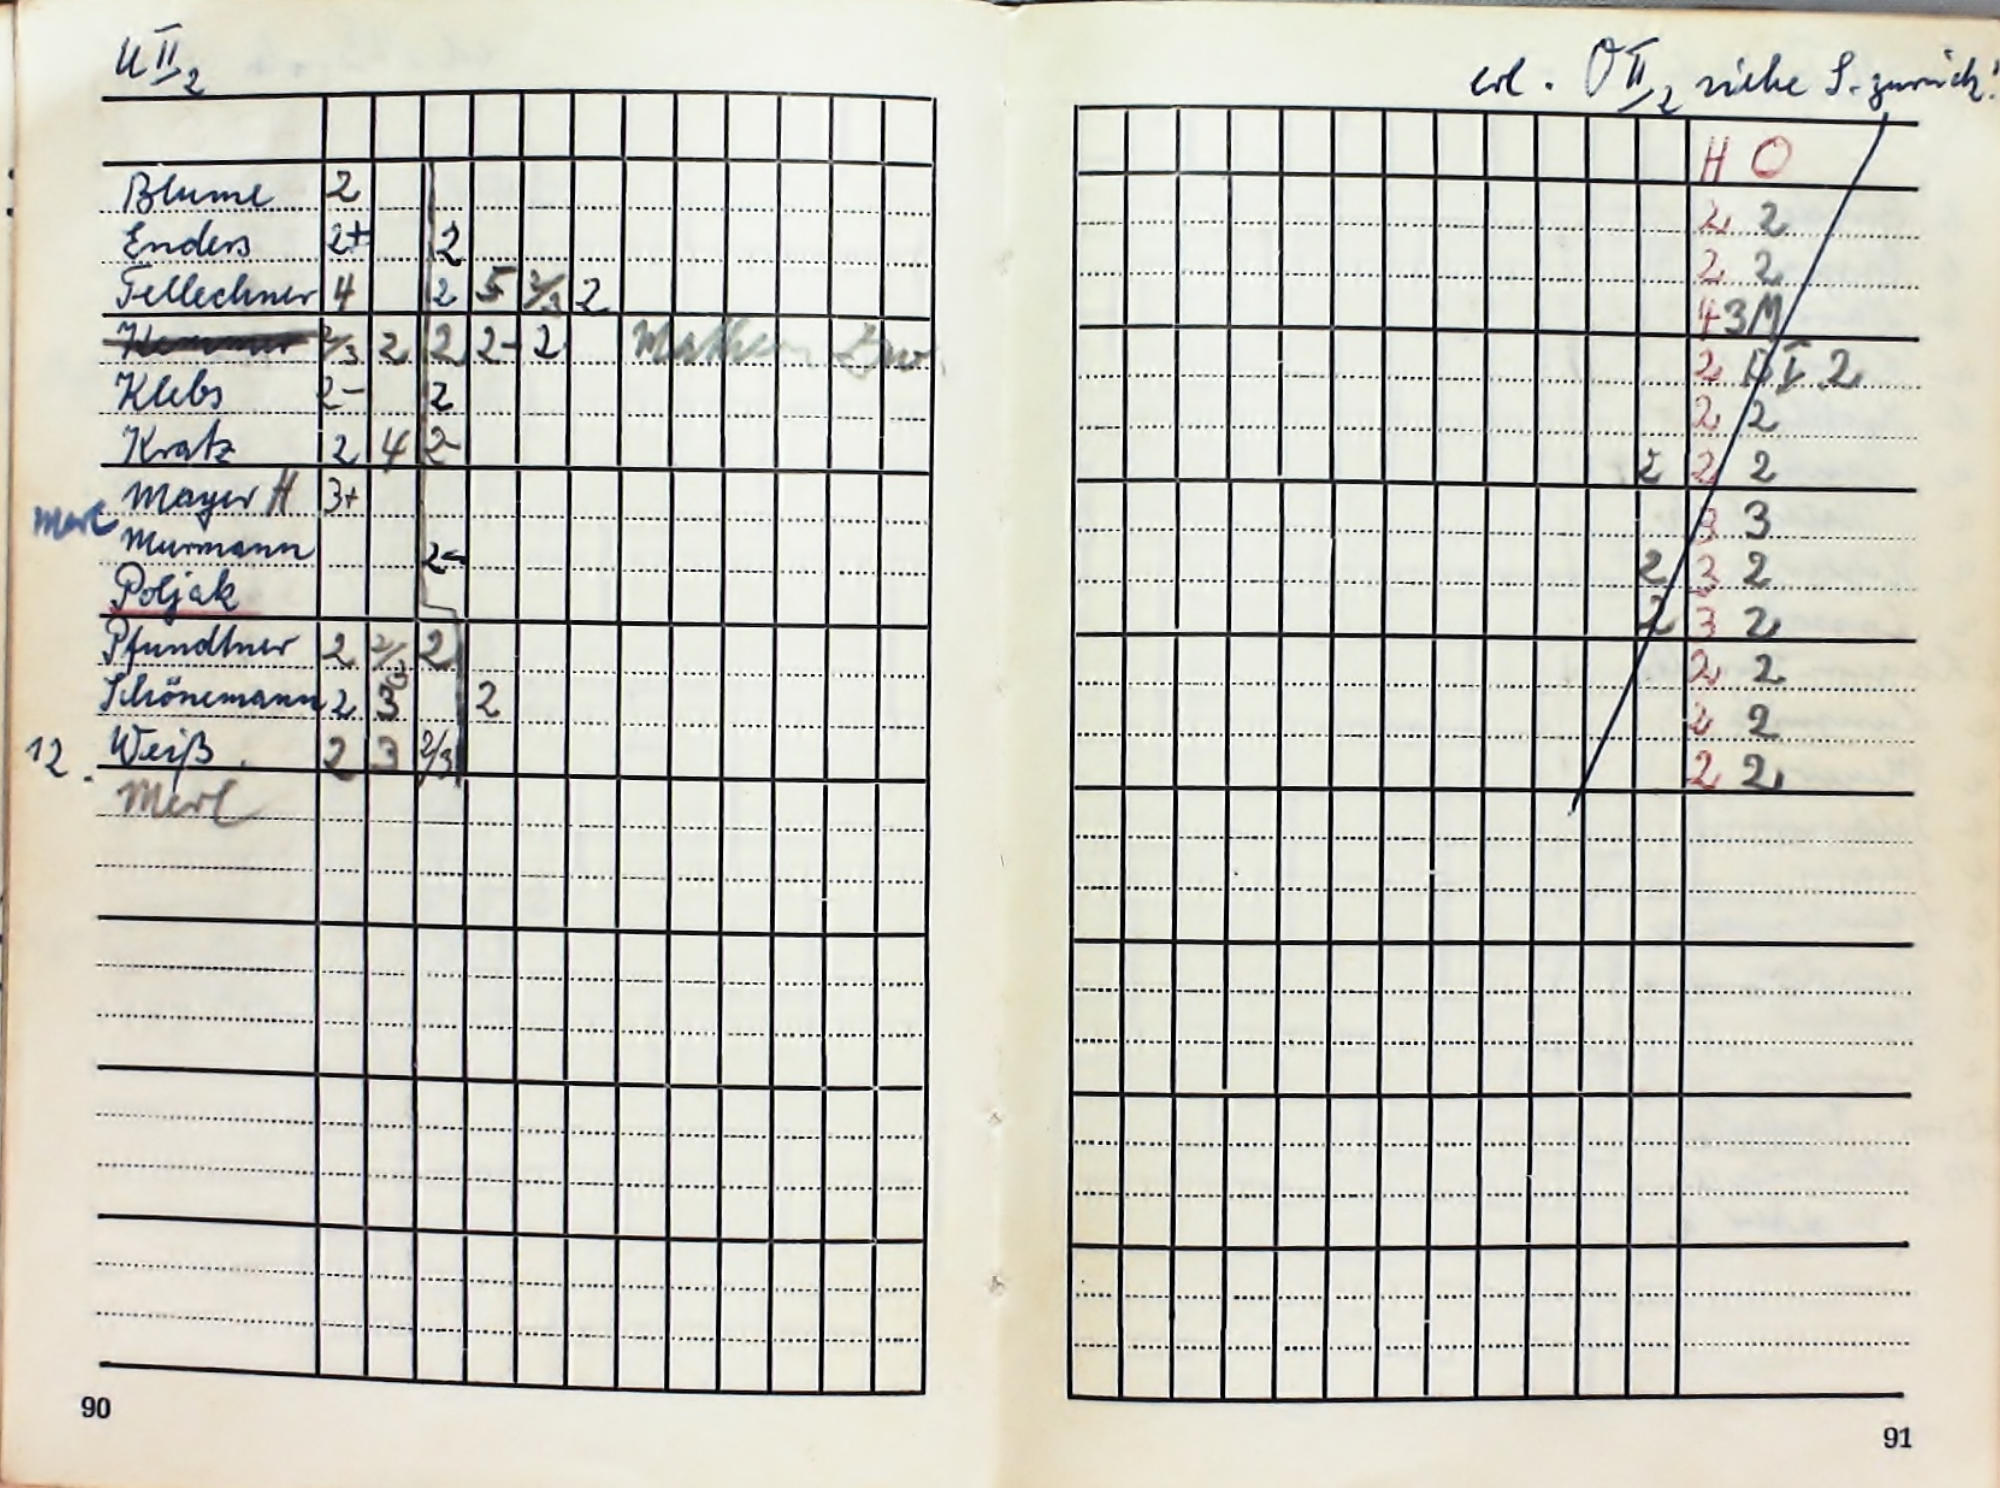 U II 2
Blume 2
Enders 2+ 2
Fellechner 4 2 5 2/3 2
2/3 2 2 2- 2 Mathe
Klebs 2- 2
Kratz 2 4 2-
Mayer H 3+
Merl Murmann 2-
Poljak
Pfundtner 2 2/3 2
Schönemann 2 3 2
12. Weiß 2 3 2/3
Merl
90
erl. O II 2 siehe S. zurück!
H O
2 2
2 2
4 3 M
2 2
2 2
2 2 2
3 3
2 3 2
2 3 2
2 2
2 2
2 2
91